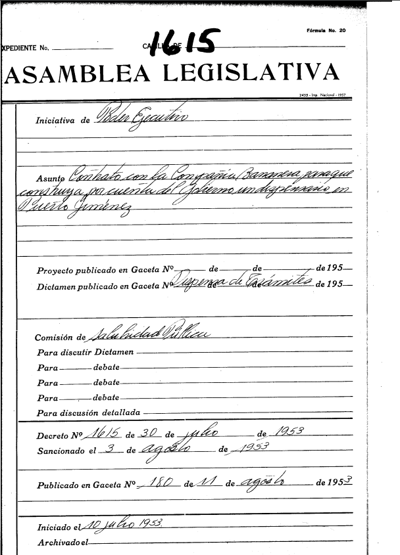 Fórmula No. 20
EXPEDIENTE No.
1615
ASAMBLEA LEGISLATIVA
Iniciativa de Poder Ejecutivo
Asunto Contrato con la Compañía Bananera para que
construya por cuenta del Gobierno un dispensario en
Puerto Jiménez
Proyecto publicado en Gaceta Nº de de de 195
Dictamen publicado en Gaceta Nº Dispensa de Trámites de 195
Comisión de Salubridad Pública
Para discutir Dictamen
Para debate
Para debate
Para debate
Para discusión detallada
Decreto Nº 1615 de 30 de julio de 1953
Sancionado el 3 de agosto de 1953
Publicado en Gaceta Nº 180 de 11 de agosto de 1953
Iniciado el 10 julio 1953
Archivado el